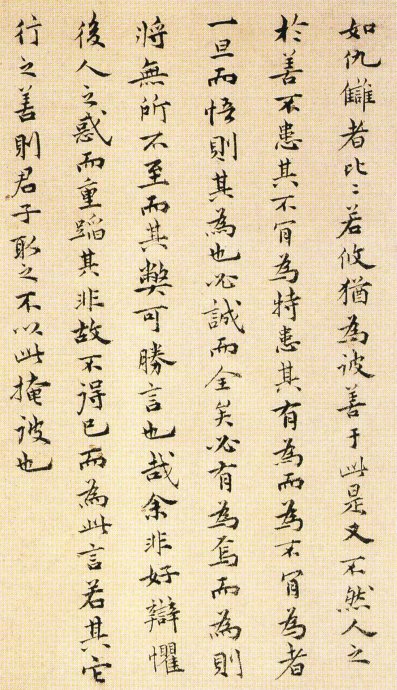 如仇讎者比〻若攸猶為彼善于此是又不然人之
於善不患其不肯為特患其有為而為不肯為者
一旦而悟則其為也必誠而全矣必有為焉而為則
將無所不至而其弊可勝言也哉余非好辯懼
後人之惑而重蹈其非故不得已而為此言若其它
行之善則君子取之不以此掩彼也